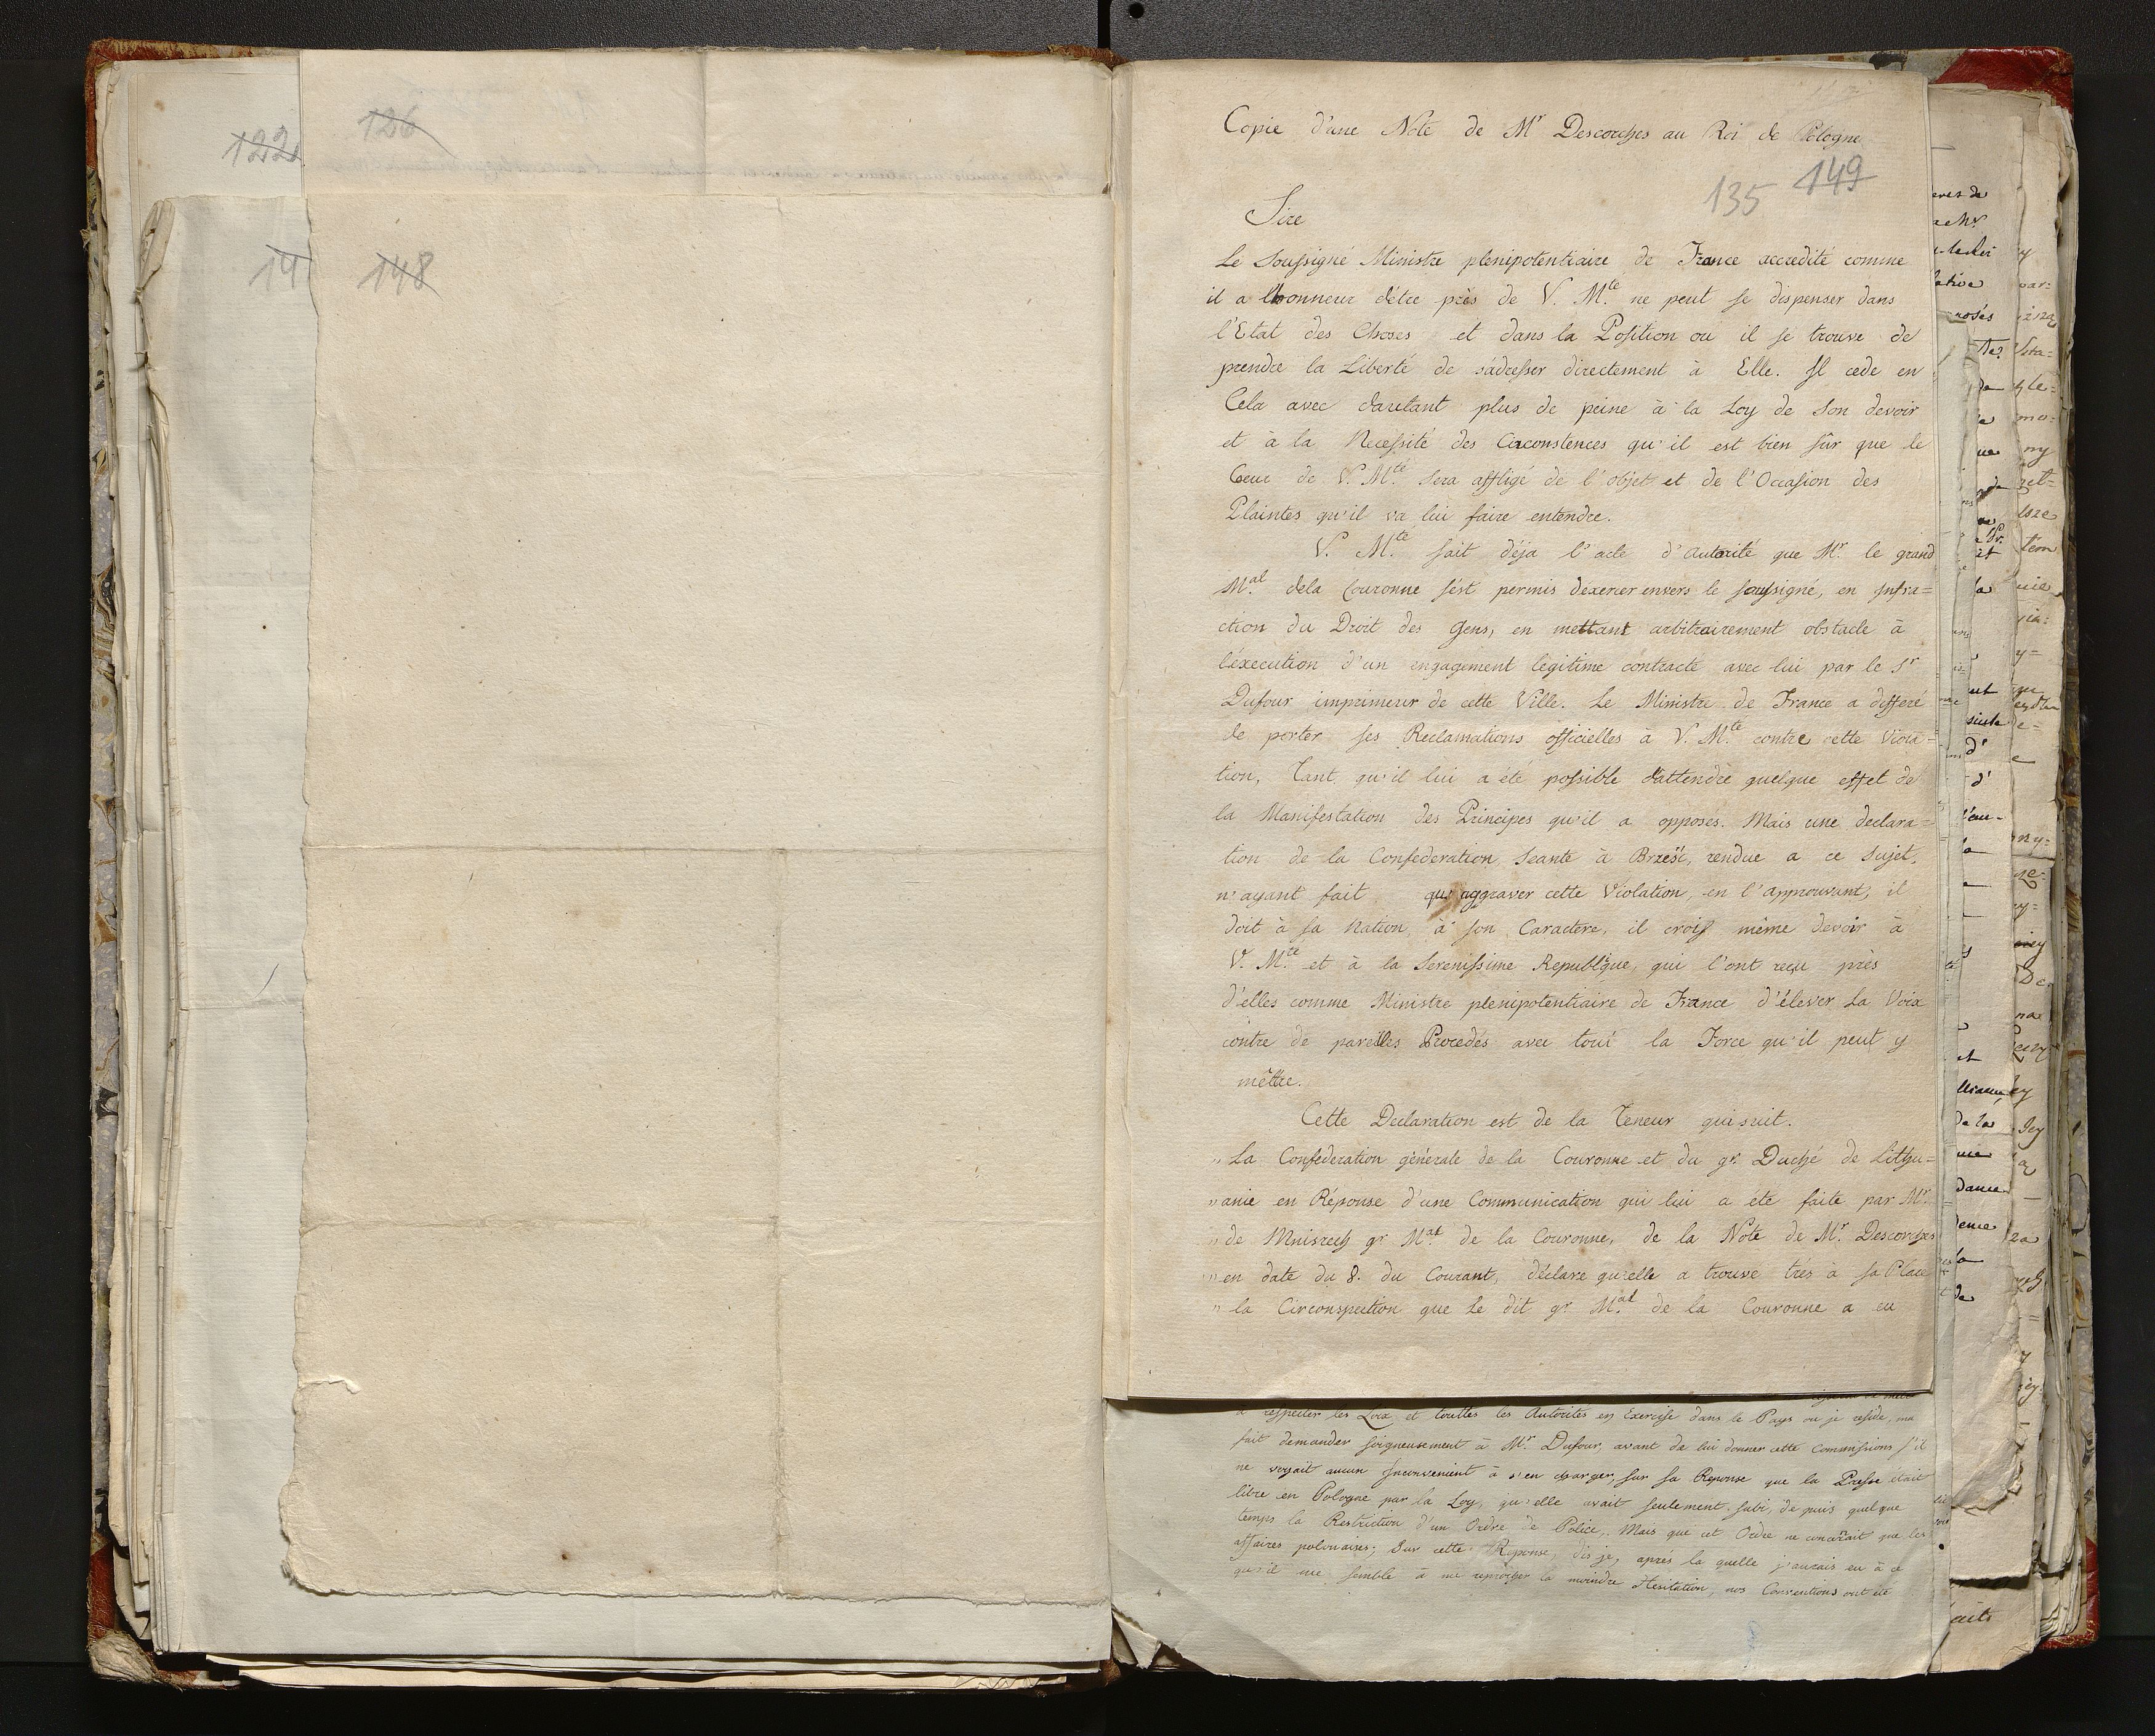 122
126
14
148
Copie d'une Note de Mr Descorches au Roi de Pologne
135 149
Sire
Le Soussigné Ministre plenipotentiaire de France accredité comme
il a lhonneur d'étre près de V. M.té ne peut se dispenser dans
l'Etat des Choses et dans la Position ou il se trouve de
prendre la Liberté de s'adresser directement à Elle. Il cede en
Cela avec dautant plus de peine à la Loy de Son devoir
et à la Necessité des Circonstences qu'il est bien sûr que le
Coeur de V. M.té Sera affligé de l'objet et de l'Occasion des
Plaintes qu'il va lui faire entendre.
V. M.té sait déja l'acte d'autorité que Mr. le grand
M.al dela Couronne s'ést permis déxercer envers le soussigné, en Infra=
ction du Droit des Gens, en mettant arbitrairement obstacle à
l'éxecution d'un engagement legitime contracté avec lui par le Sr
Dufour imprimeur de cette Ville. Le Ministre de France a differé
de porter ses Reclamations officielles à V. M.té contre cette Viola=
tion, Tant qu'il lui a été possible d'attendre quelque effet de
la Manifestation des Principes qu'il a opposés. Mais une declara=
tion de la Confederation Seante à Brześć, rendue a ce Sujet,
n'ayant fait qu'aggraver cette Violation, en l'approuvant, il
doit à sa Nation, à son Caractere, il crois même devoir à
V. M.té et à la Serenissime Republique, qui l'ont reçu près
d'elles comme Ministre plenipotentiaire de France d'élever La Voix
contre de pareilles Procedés avec tout la Force qu'il peut y
mêttre.
Cette Declaration est de la Teneur qui suit.
" La Confederation génerale de la Couronne et du gr. Duché de Lithu=
" anie en Réponse d'une Communication qui lui a été faite par Mr.
" de Mniszech gr M.al de la Couronne, de la Note de Mr. Descorches
" en date du 8. du Courant, déclare qu'elle a trouvé très à sa Place
" la Circonspection que Le dit gr. M.al de la Couronne a eu
à respecter les Loix et touttes les Autorités en Exercise dans le Pays ou je reside, ma
fait demander soigneusement à Mr. Dufour, avant de lui donner cette Commissions s'il
ne voyait aucun Inconvenient à s'en charger, sur sa Reponse que la Presse était
libre en Pologne par la Loy, qu'elle avait seulement subi, de puis quelque
temps la Restriction d'un Ordre de Police, Mais que cet Ordre ne concernait que les
affaires polonaises; Sur cette Reponse, dis je, aprés la quelle j'aurais eu à ce
qu'il me semble à me reprocher la moindre Hesitation, nos Conventions ont été